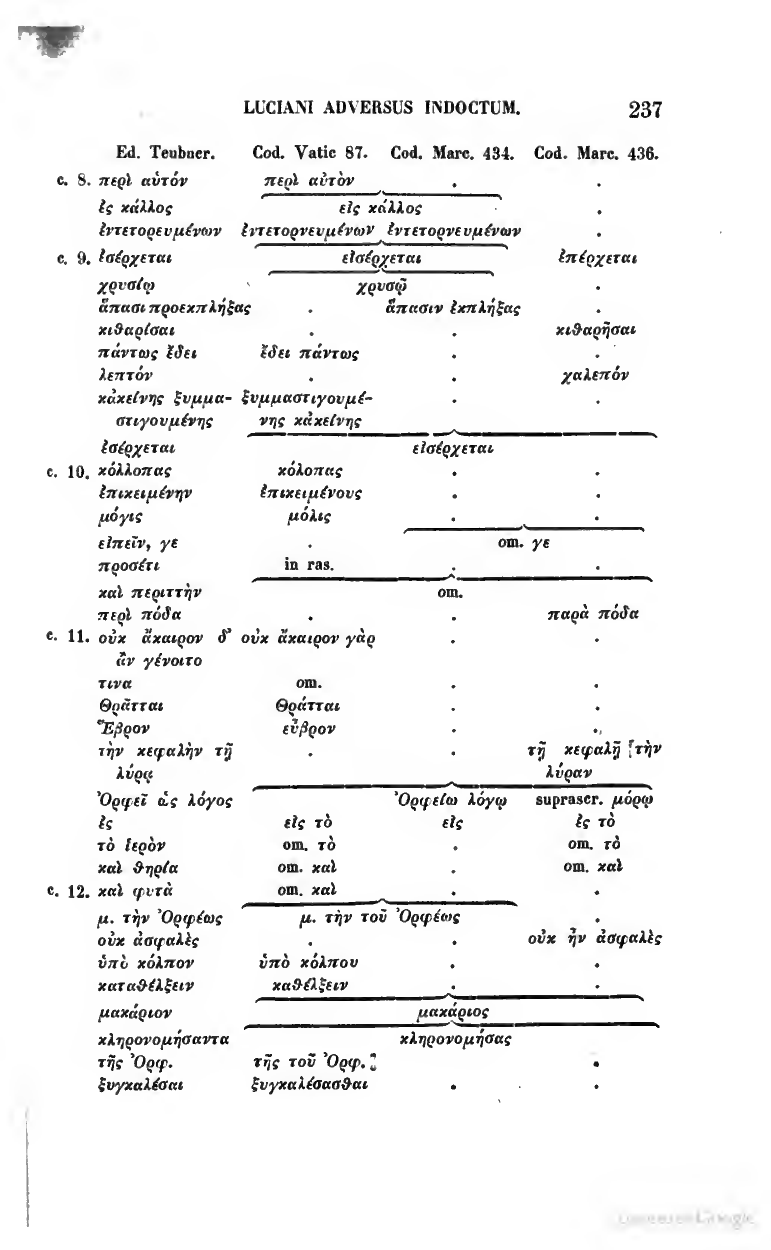 LUCIANI ADVERSUS INDOCTUM. 237
Ed. Teubner. Cod. Vatic 87. Cod. Marc. 434. Cod. Marc. 436.
c. 8. περὶ αὑτόν περὶ αὐτὸν . .
ἐς κάλλος εἰς κάλλος .
ἐντετορευμένων ἐντετορνευμένων ἐντετορνευμένων .
c. 9. ἐσέρχεται εἰσέρχεται ἐπέρχεται
χρυσίῳ χρυσῷ .
ἅπασι προεκπλήξας . ἅπασιν ἐκπλήξας .
κιθαρίσαι . . κιθαρῆσαι
πάντως ἔδει ἔδει πάντως . .
λεπτόν . . χαλεπόν
κἀκείνης ξυμμα- ξυμμαστιγουμέ- . .
στιγουμένης νης κἀκείνης
ἐσέρχεται εἰσέρχεται
c. 10. κόλλοπας κόλοπας . .
ἐπικειμένην ἐπικειμένους . .
μόγις μόλις . .
εἰπεῖν, γε . om. γε
προσέτι in ras. . .
καὶ περιττὴν om.
περὶ πόδα . . παρὰ πόδα
c. 11. οὐκ ἄκαιρον δ᾽ οὐκ ἄκαιρον γὰρ . .
ἂν γένοιτο
τινα om. . .
Θρᾷτται Θράτται . .
Ἕβρον εὗβρον . .
τὴν κεφαλὴν τῇ . . τῇ κεφαλῇ [τὴν
λύρᾳ λύραν
Ὀρφεῖ ὡς λόγος Ὀρφείῳ λόγῳ suprascr. μόρῳ
ἐς εἰς τὸ εἰς ἐς τὸ
τὸ ἱερὸν om. τὸ . om. τὸ
καὶ θηρία om. καὶ om. καὶ
c. 12. καὶ φυτὰ om. καὶ . .
μ. τὴν Ὀρφέως μ. τὴν τοῦ Ὀρφέως .
οὐκ ἀσφαλὲς . . οὐκ ἦν ἀσφαλὲς
ὑπὸ κόλπον ὑπὸ κόλπου . .
καταθέλξειν καθέλξειν . .
μακάριον μακάριος
κληρονομήσαντα κληρονομήσας
τῆς Ὀρφ. τῆς τοῦ Ὀρφ. .
ξυγκαλέσαι ξυγκαλέσασθαι . .